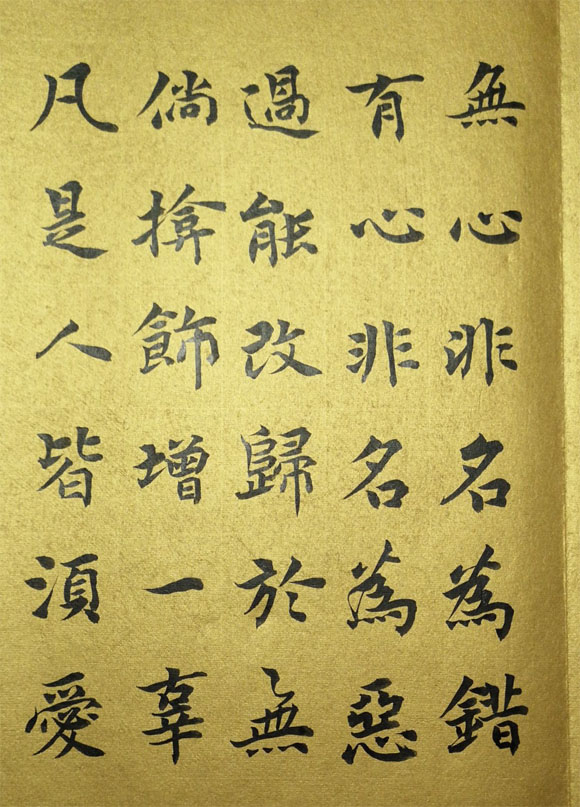 無心非名為錯
有心非名為惡
過能改歸於無
倘揜飾增一辜
凡是人皆須愛